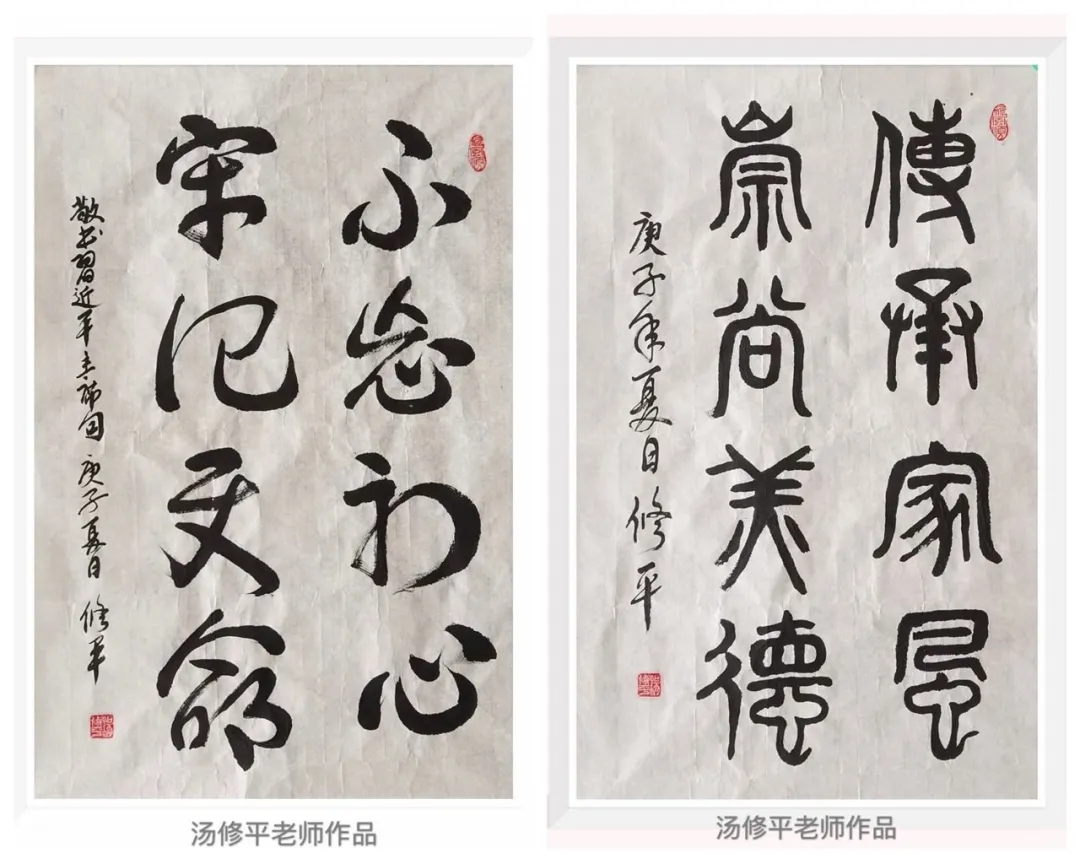 不忘初心
牢记使命
敬书習近平主席句 庚子夏日 修平
汤修平老师作品
傳承家風
崇尚美德
庚子年夏日 修平
汤修平老师作品